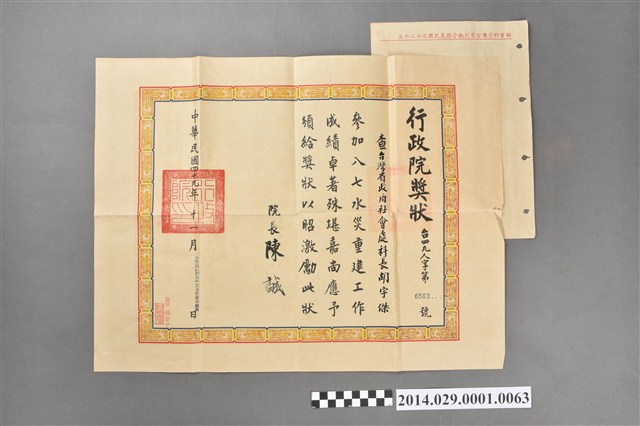 行政院獎狀
台四九人字第
6503
號
查台灣省政府社會處科長胡宇傑
參加八七水災重建工作
成績卓著殊堪嘉尚應予
頒給獎狀以昭激勵此狀
院長 陳誠
中華民國四十九年十一月 日
2014.029.0001.0063